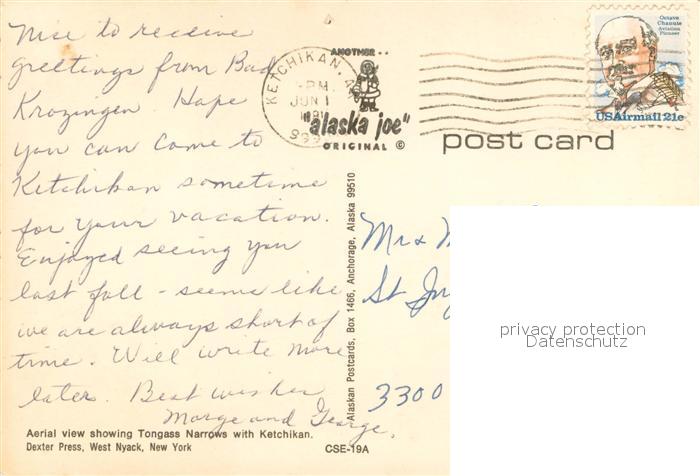 Nice to receive
greetings from Bad
Krozingen Hope
you can come to
Ketchikan sometime
for your vacation.
Enjoyed seeing you
last fall - seems like
we are always short of
time. Will write more
later. Best wishes
Marge and George.
Aerial view showing Tongass Narrows with Ketchikan.
Dexter Press, West Nyack, New York
CSE-19A
Alaskan Postcards, Box 1466, Anchorage, Alaska 99510
KETCHIKAN,
PM
JUN 1
ANOTHER..
"alaska joe"
ORIGINAL ©
post card
Octave
Chanute
Aviation
Pioneer
USAirmail 21c
Mr &
St
3300
privacy protection
Datenschutz